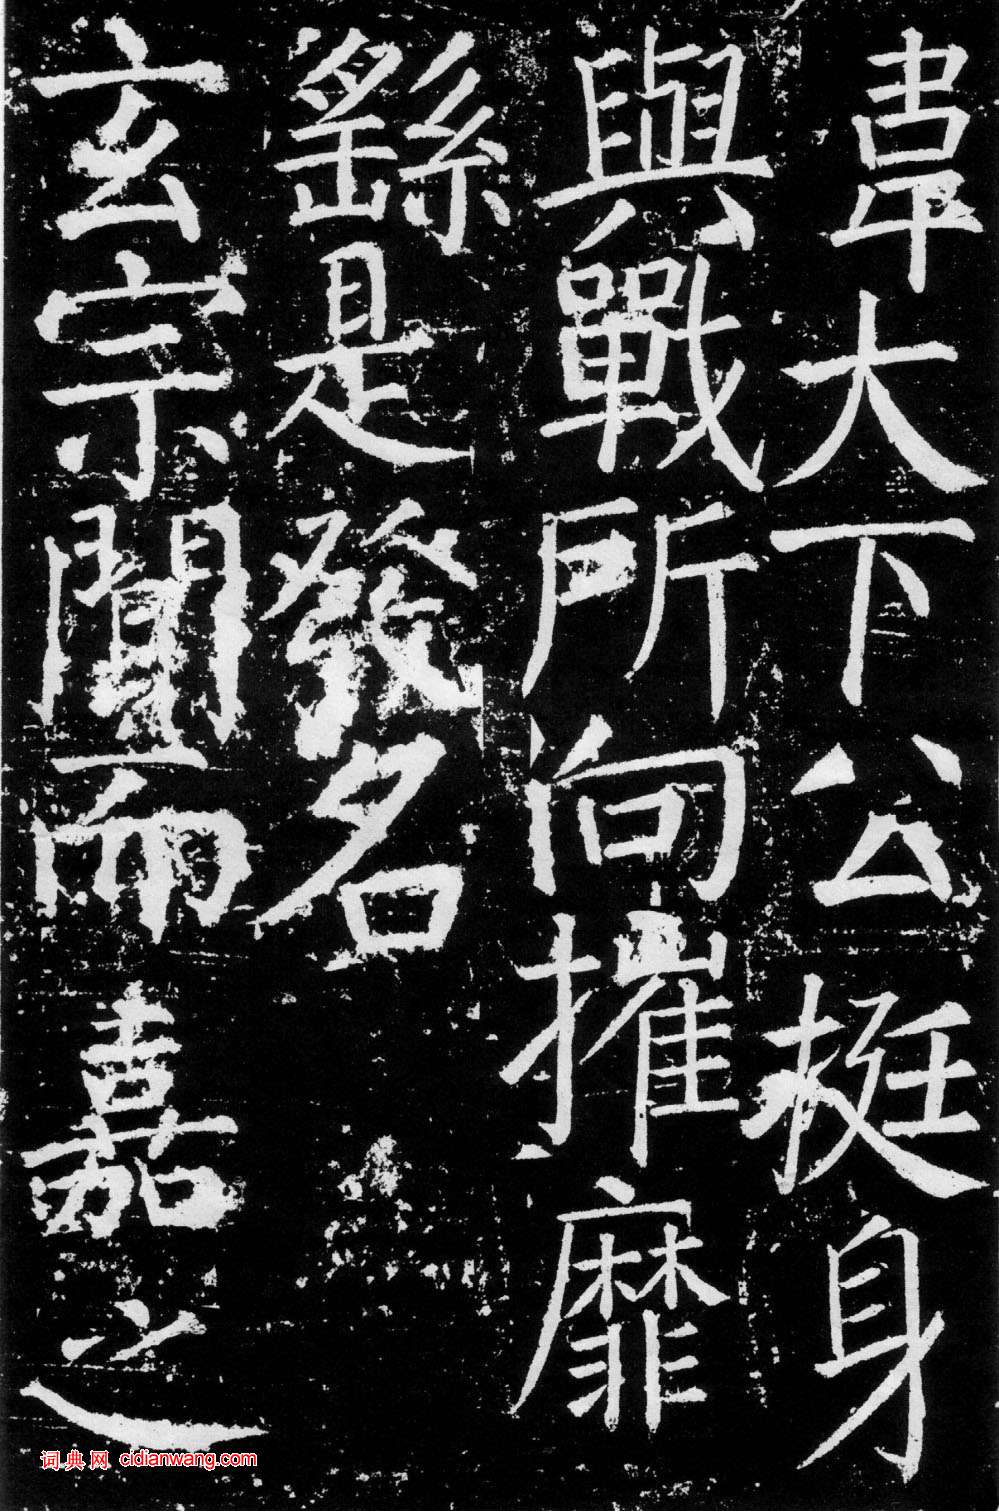 韋大下公挺身
與戰所向摧靡
繇是發名
玄宗聞而嘉之
词典网 cidianwang.com